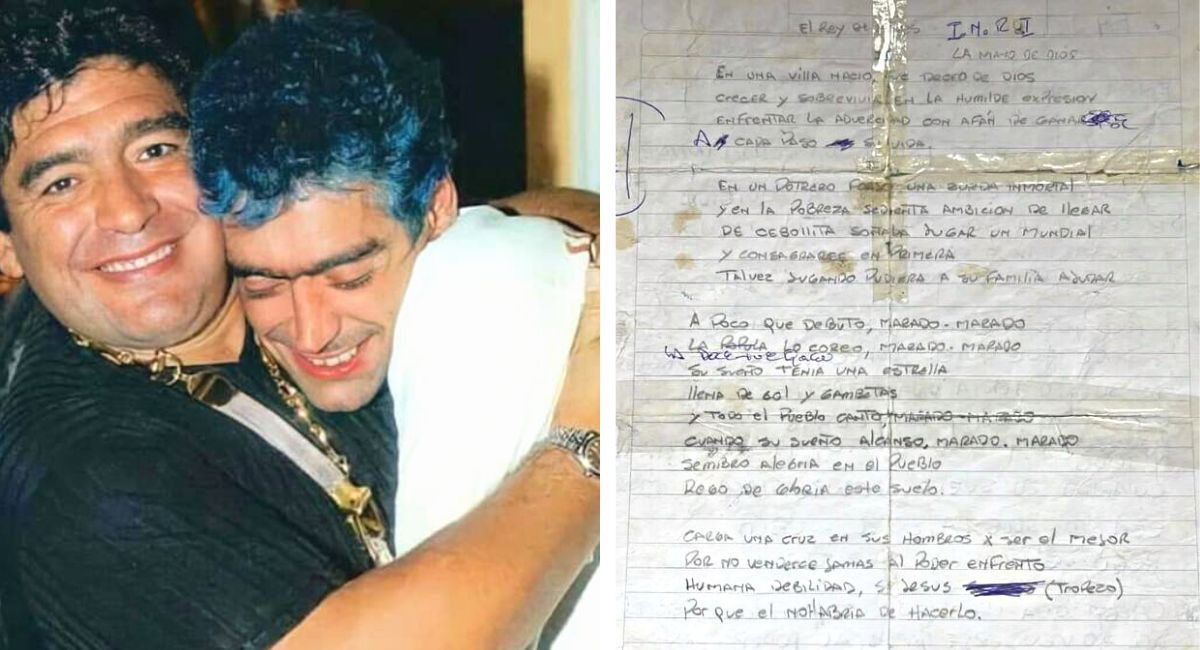 El Rey de I.N.R.I
LA MANO DE DIOS
EN UNA VIllA NACIO, FUE DECEO DE DIOS
CRECER Y SOBREVIVIR EN LA HUMILDE EXPRESION
ENFRENTAR LA ADVERCIDAD CON AFÁN DE GANARSE
A CADA PASO SU VIDA.
EN UN POTRERO FORJO UNA ZURDA INMORTAl
Y EN LA POBREZA SEDIENTA AMBICION DE llEGAR
DE CEBOLLITA SOÑABA JUGAR UN MUNDIAl
Y CONSAGRARCE EN PRIMERA
TALVEZ JUGANDO PUDIERA A SU FAMILIA AYUDAR
A POCO QUE DEBUTO, MARADO - MARADO
LA POPULA LO COREO, MARADO - MARADO
LA DOCE FUE QUIEN
SU SUEÑO TENIA UNA ESTRELLA
llENA DE GOL Y GAMBETAS
Y TODO El PUEBLO CANTO, MARADO - MARADO
CUANDO SU SUEÑO ALCANSO, MARADO - MARADO
SEMBRO ALEGRIA EN El PUEBLO
REGO DE GLORIA ESTE SUELO.
CARGA UNA CRUZ EN SUS HOMBROS X SER El MEJOR
POR NO VENDERCE JAMAS Al PODER ENFRENTO
HUMANA DEBILIDAD, SI JESUS (TROPEZO)
POR QUE El NO HABRIA DE HACERLO.